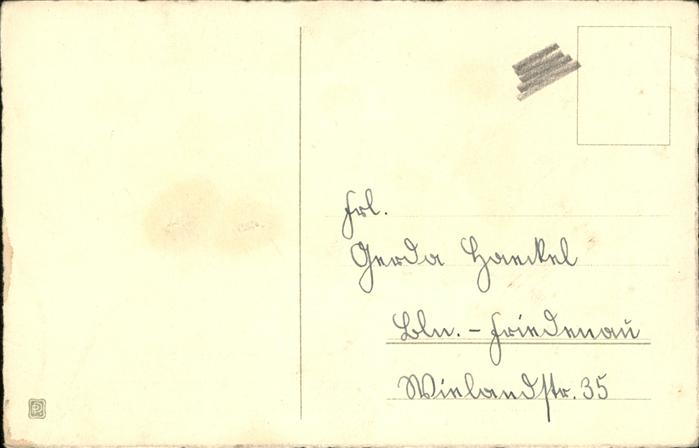 Frl.
Gerda Haeckel
Bln. - Friedenau
Wielandstr. 35